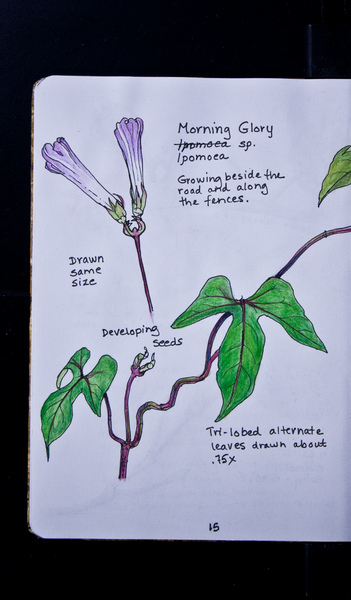 Morning Glory
Ipomoea sp.
Ipomoea
Growing beside the
road and along
the fences.
Drawn
same
size
Developing
Seeds
Tri-lobed alternate
leaves drawn about
.75x
15